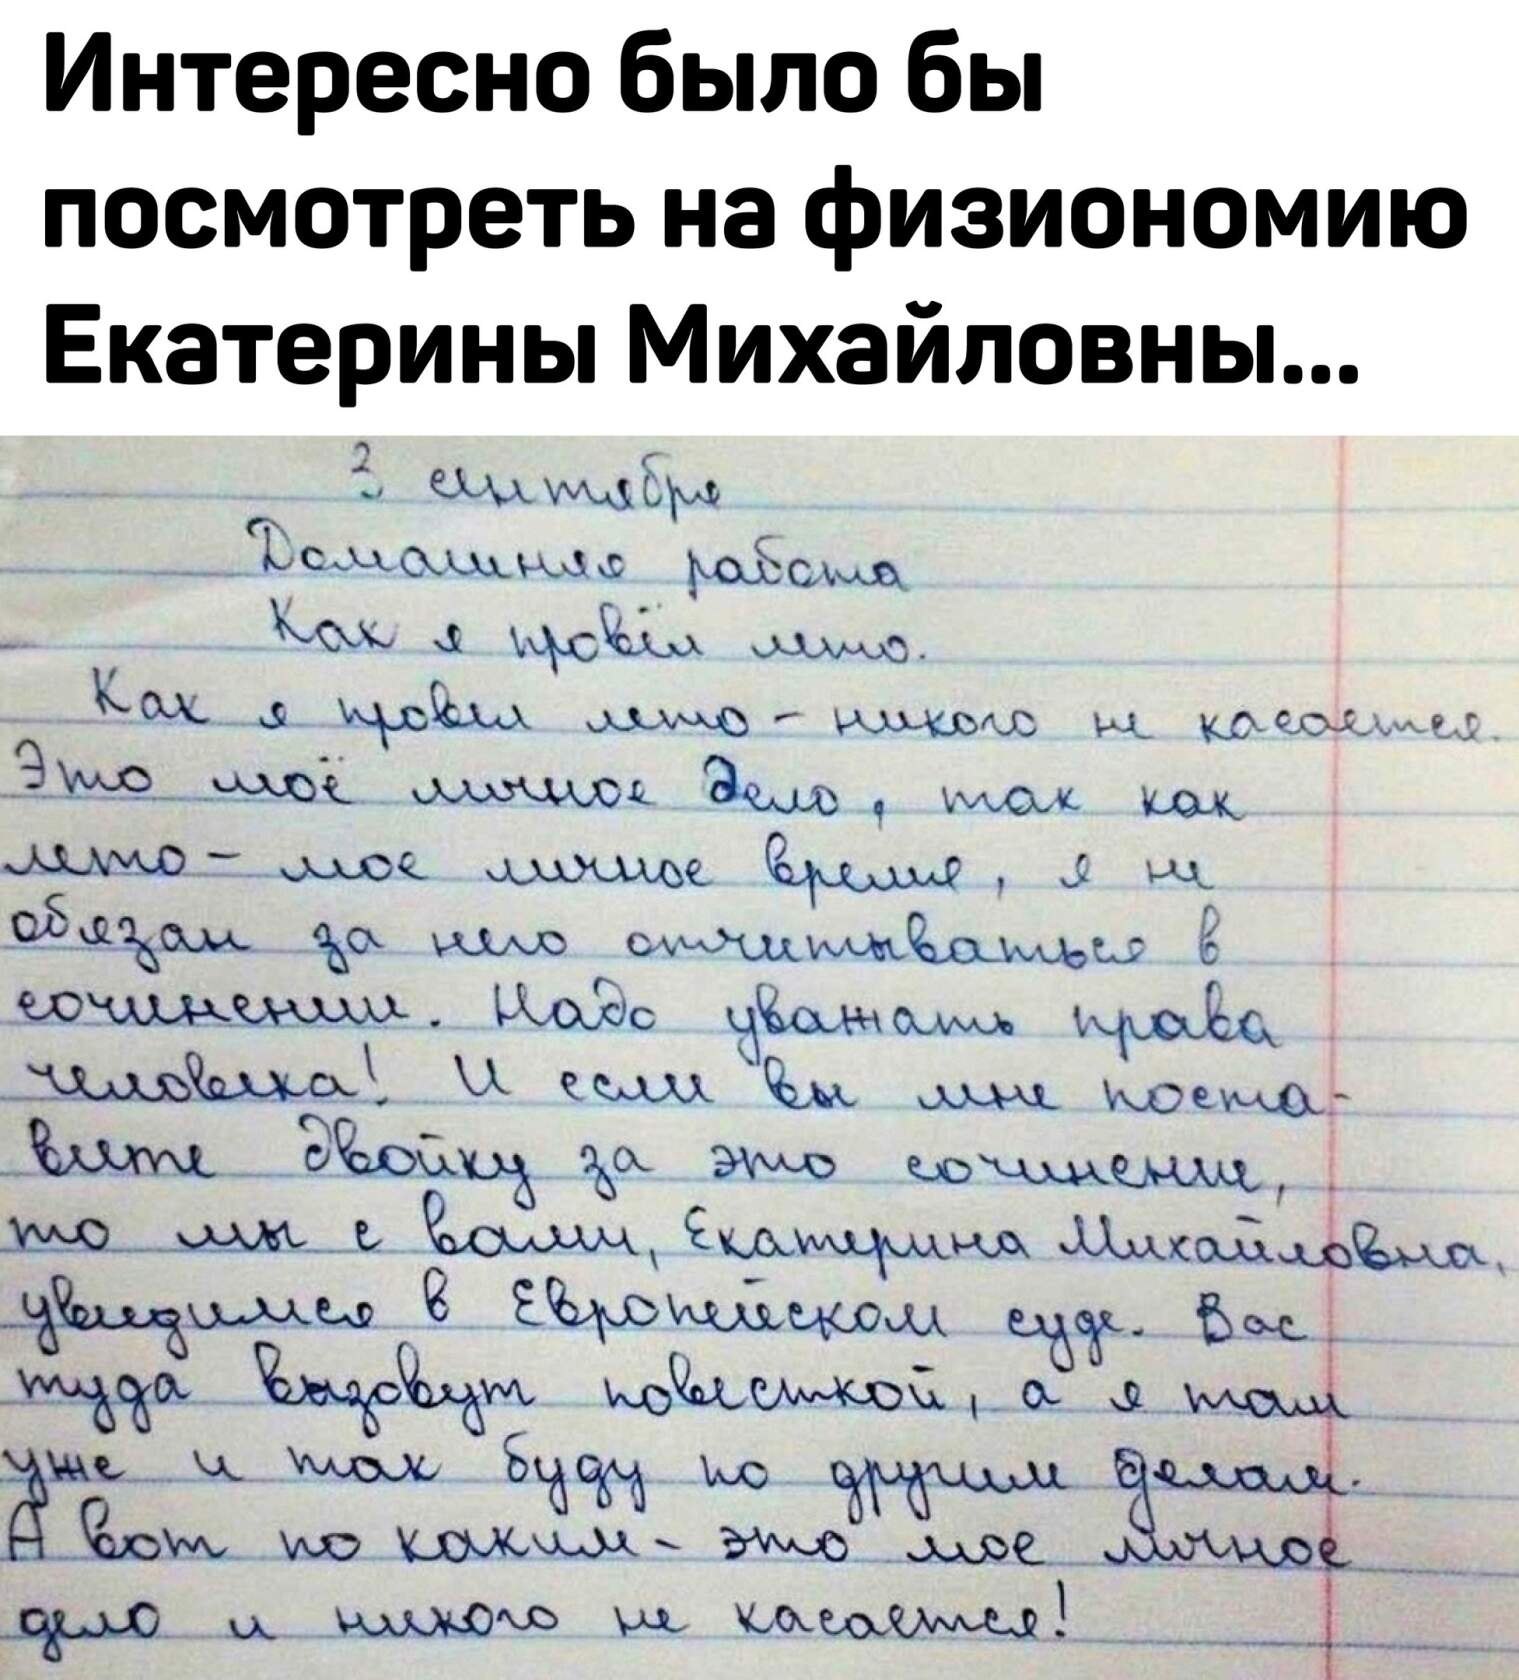 Интересно было бы
посмотреть на физиономию
Екатерины Михайловны...
3 сентября
Домашняя работа
Как я провёл лето.
Как я провел лето - никого не касается.
Это моё личное дело, так как
лето - мое личное время, я не
обязан за него отчитываться в
сочинении. Надо уважать права
человека! И если вы мне поста-
вите двойку за это сочинение,
то мы с вами, Екатерина Михайловна,
увидимся в Европейском суде. Вас
туда вызовут повесткой, а я там
уже и так буду по другим делам.
А вот по каким - это мое личное
дело и никого не касается!